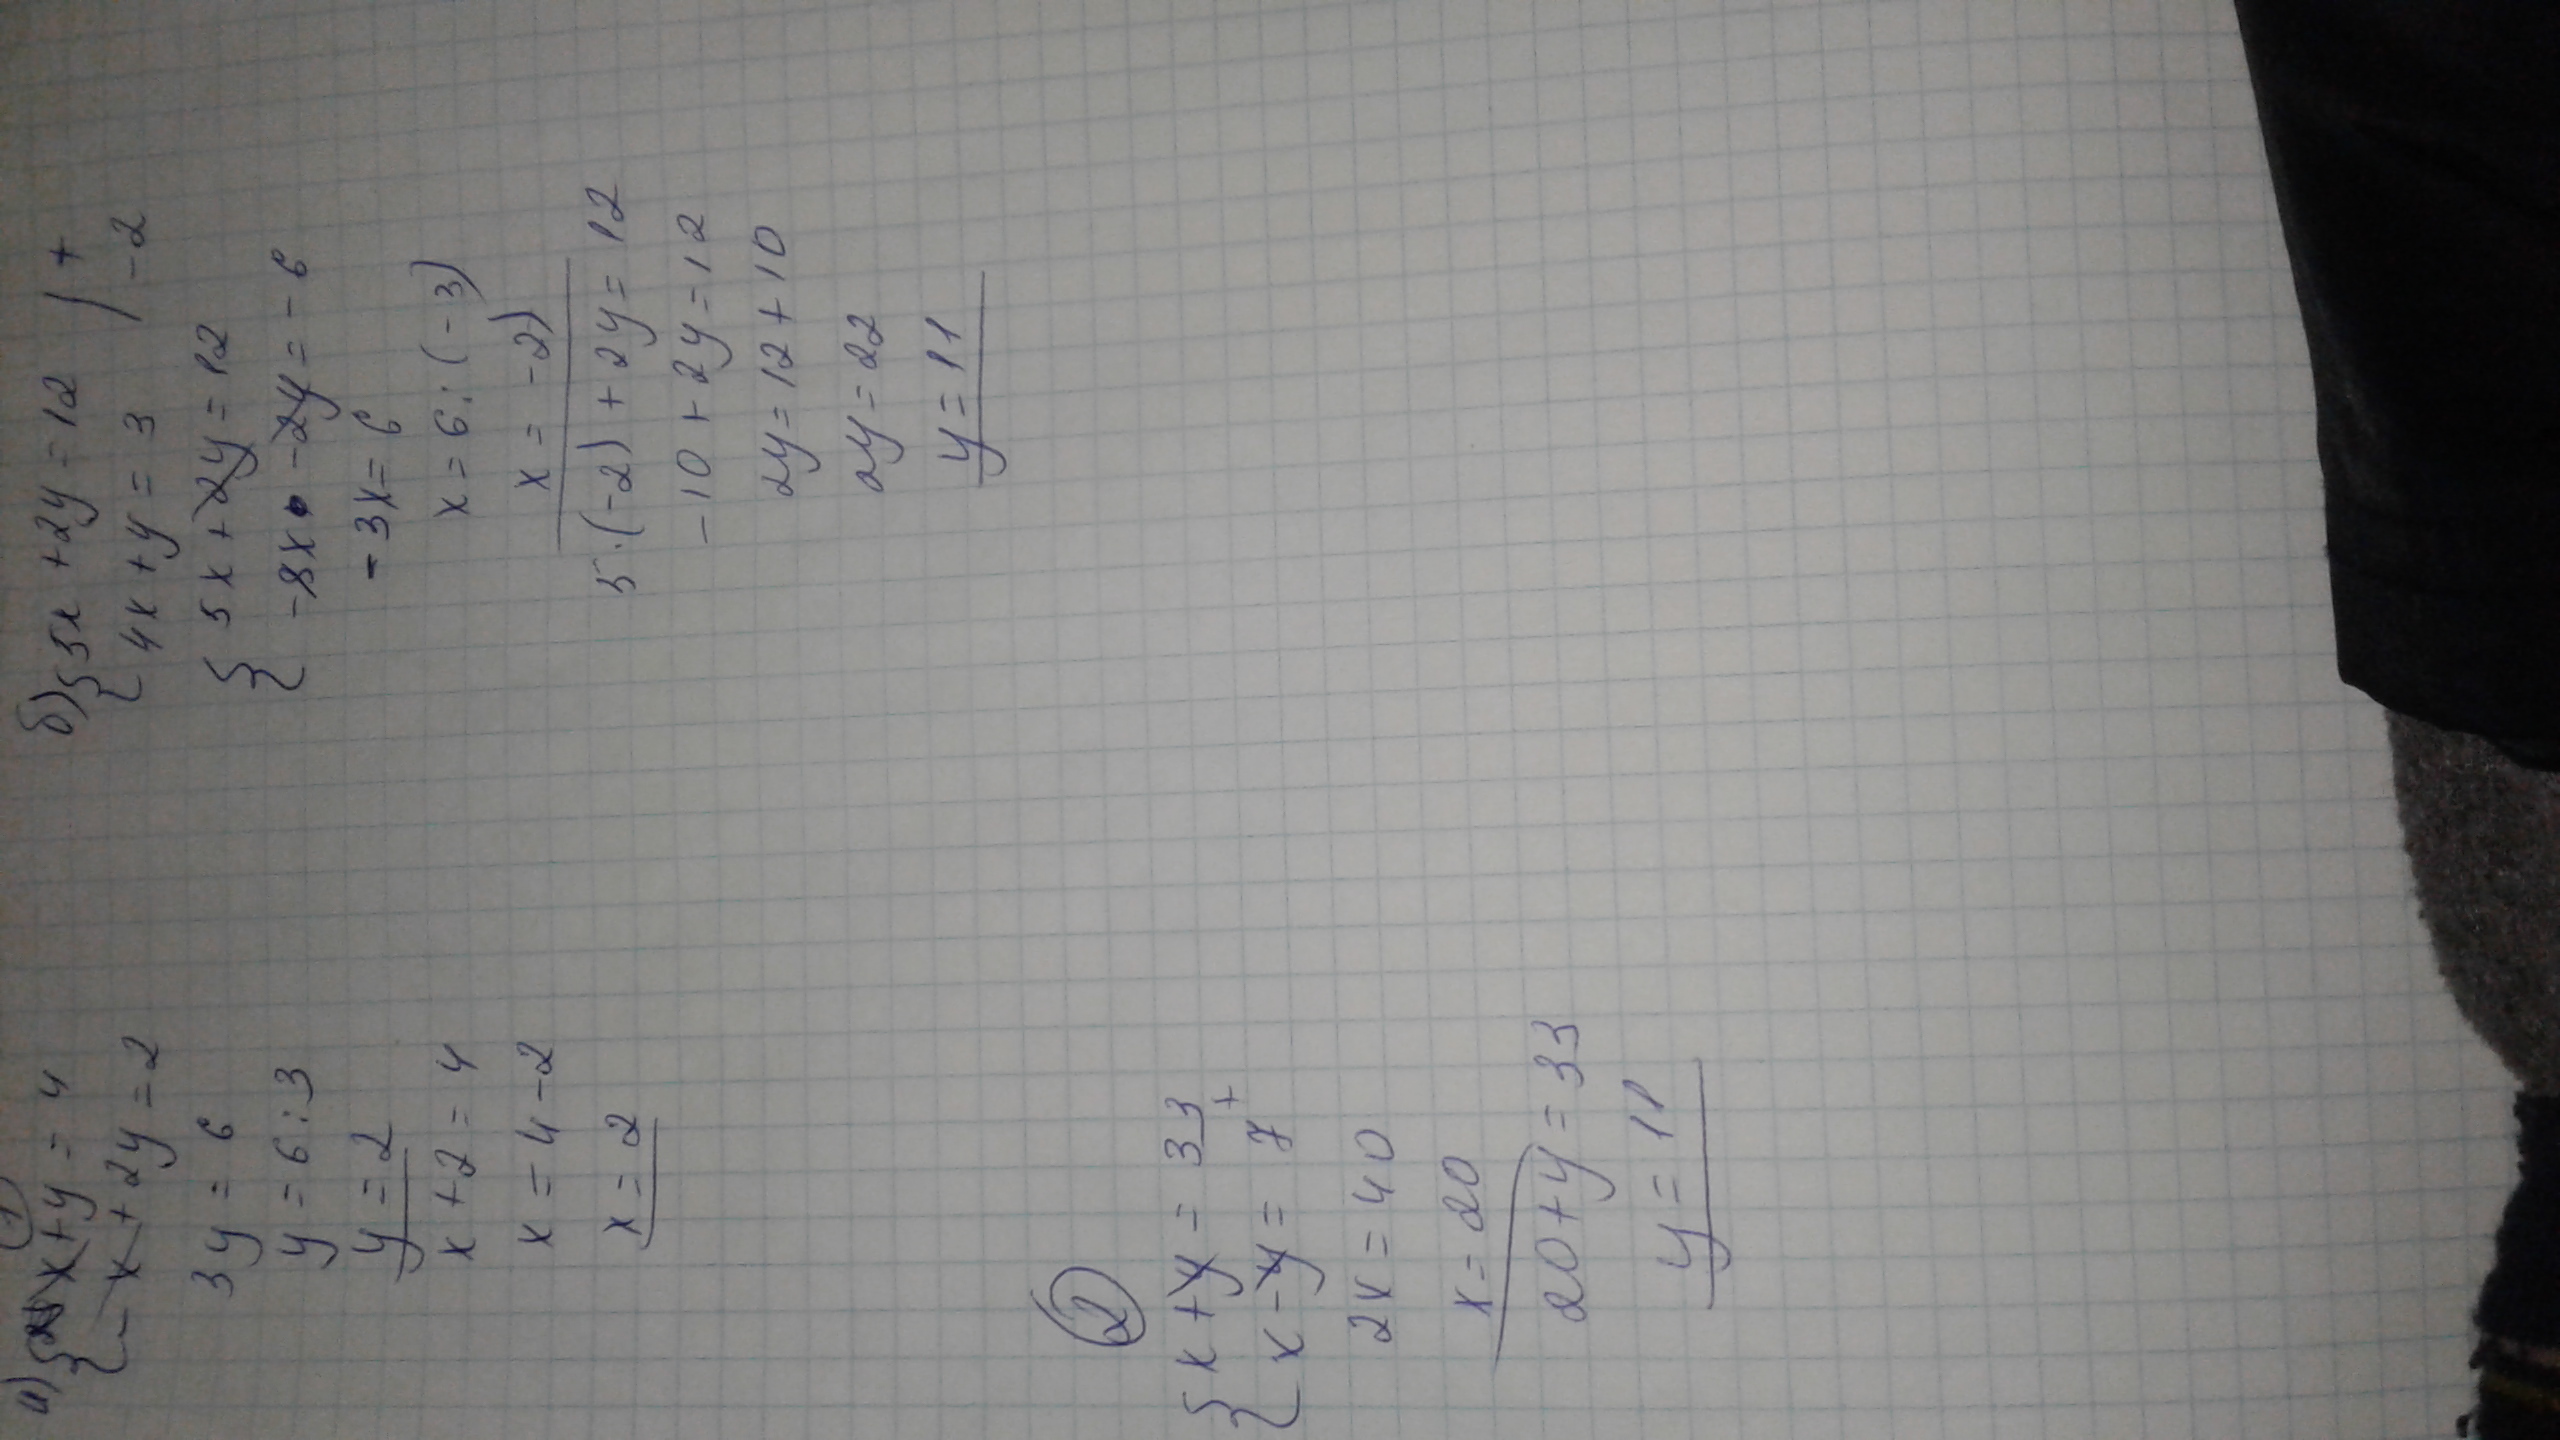 1
а) { x + y = 4
- x + 2y = 2
3y = 6
y = 6 : 3
y = 2
x + 2 = 4
x = 4 - 2
x = 2
б) { 5x + 2y = 12 | +
4x + y = 3 -2
{ 5x + 2y = 12
-8x - 2y = - 6
- 3x = 6
x = 6 : (-3)
x = -2)
5·(-2) + 2y = 12
-10 + 2y = 12
2y = 12 + 10
2y = 22
y = 11
2
{ x + y = 33
x - y = 7 +
2x = 40
x = 20
20 + y = 33
y = 11